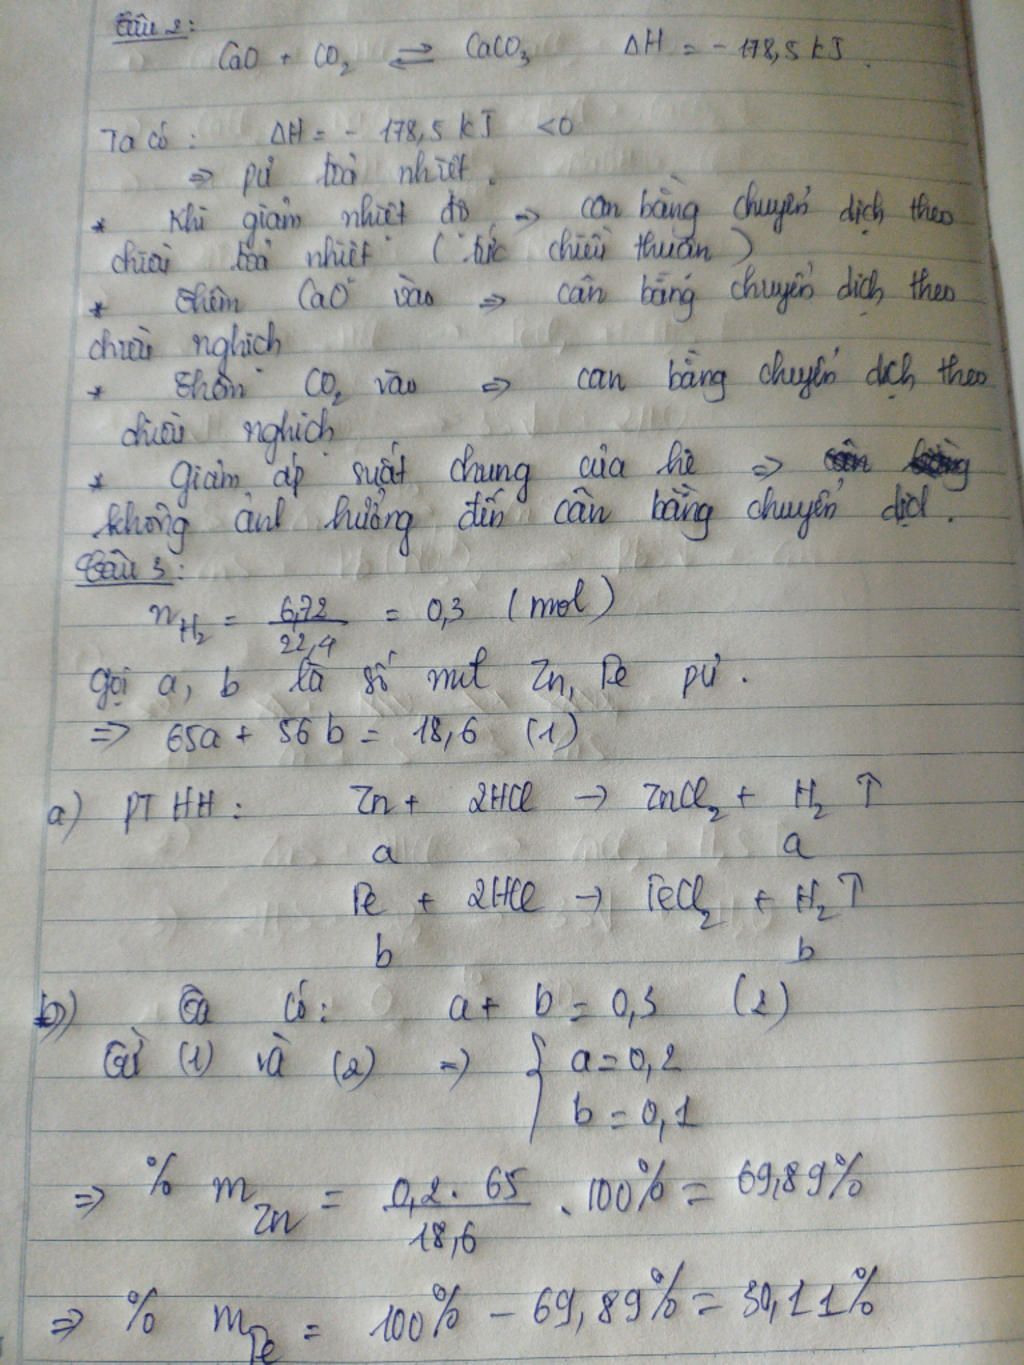 Câu 2:
CaO + CO₂ ⇌ CaCO₃ ΔH = - 178,5 kJ.
Ta có: ΔH = - 178,5 kJ < 0
⇒ pư toả nhiệt.
* Khi giảm nhiệt độ ⇒ cân bằng chuyển dịch theo
chiều toả nhiệt (tức chiều thuận)
* Thêm CaO vào ⇒ cân bằng chuyển dịch theo
chiều nghịch
* Thêm CO₂ vào ⇒ cân bằng chuyển dịch theo
chiều nghịch
* Giảm áp suất chung của hệ ⇒
không ảnh hưởng đến cân bằng chuyển dịch.
Câu 3:
n_H₂ = 6,72/22,4 = 0,3 (mol)
Gọi a, b là số mol Zn, Fe pư.
⇒ 65a + 56b = 18,6 (1)
a) PTHH: Zn + 2HCl → ZnCl₂ + H₂ ↑
a a
Fe + 2HCl → FeCl₂ + H₂ ↑
b b
b) Ta có: a + b = 0,3 (2)
Từ (1) và (2) ⇒ { a = 0,2
b = 0,1
⇒ % m_Zn = 0,2 . 65/18,6 . 100% = 69,89%
⇒ % m_Fe = 100% - 69,89% = 30,11%